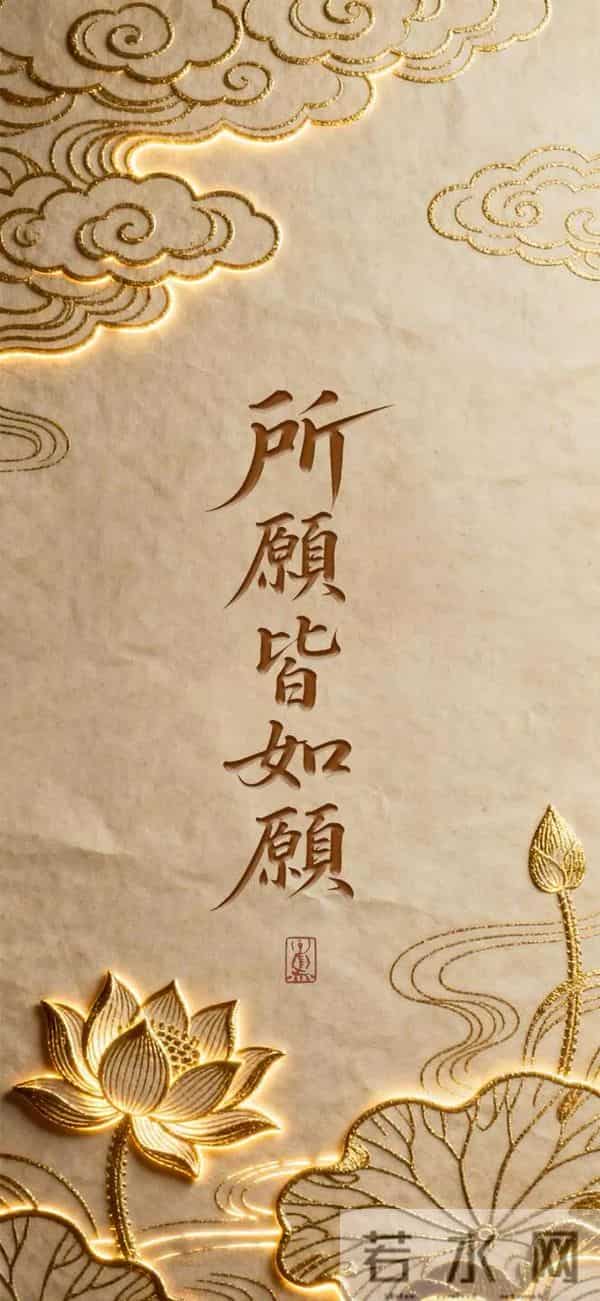 所願皆如願
若水网